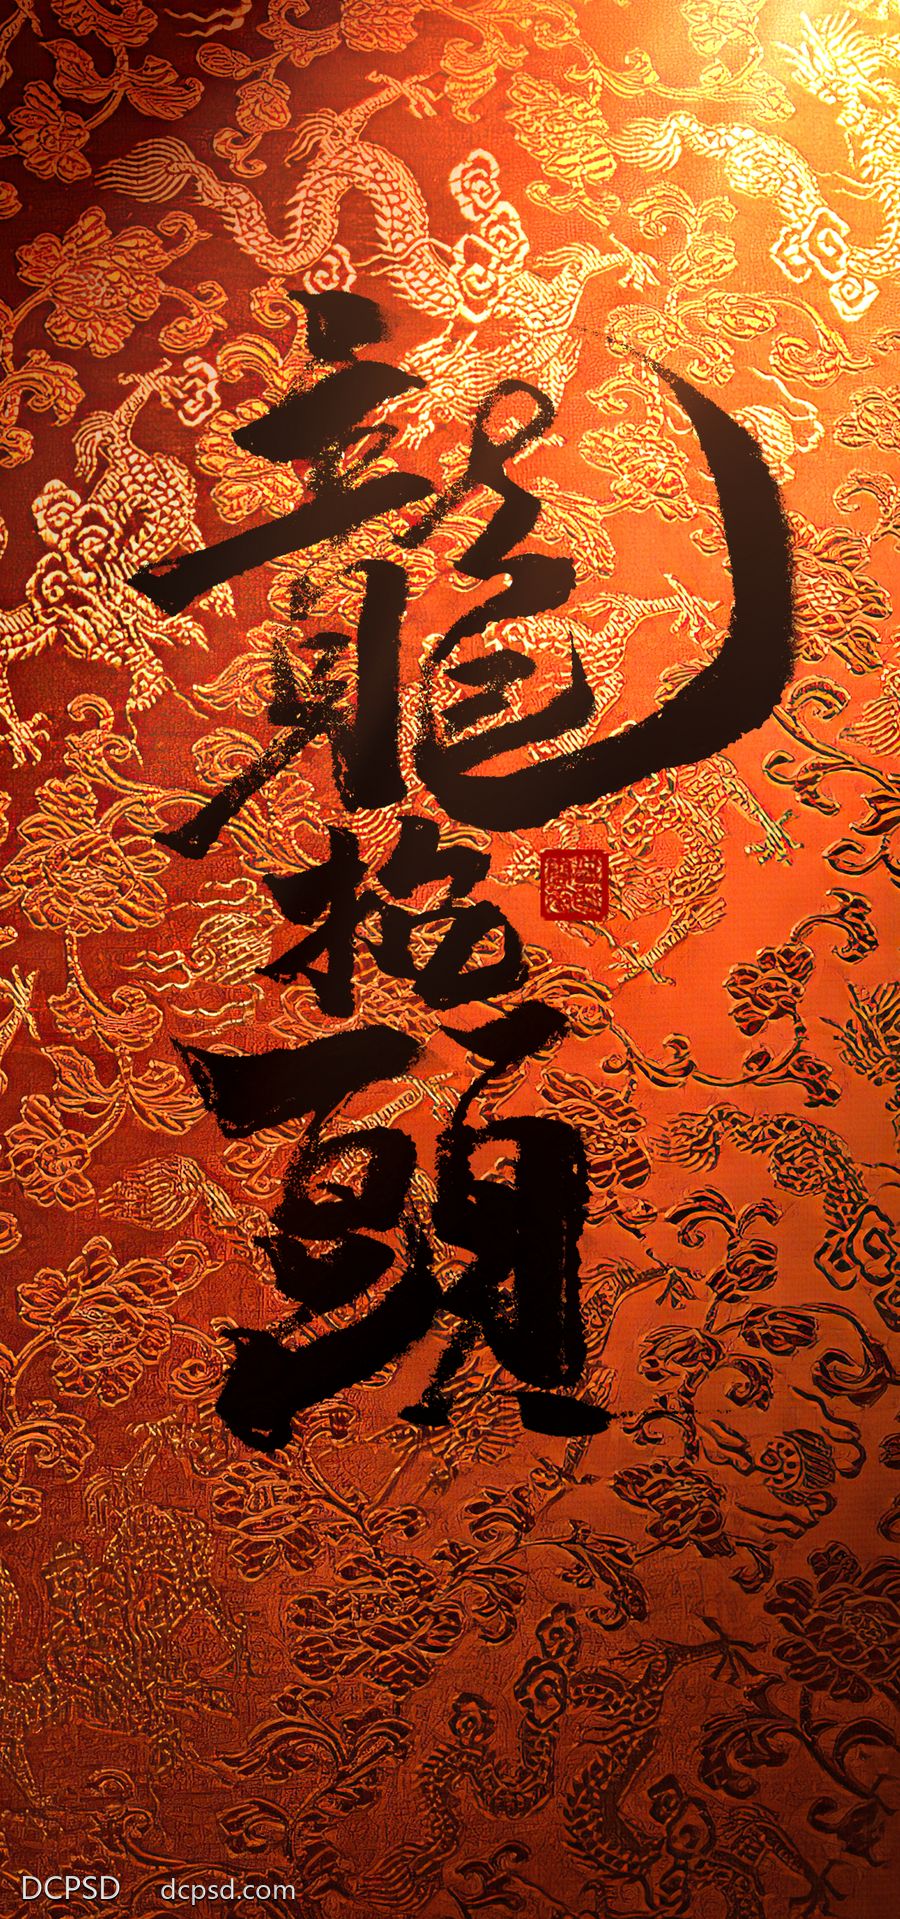 龍
抬
頭
DCPSD dcpsd.com